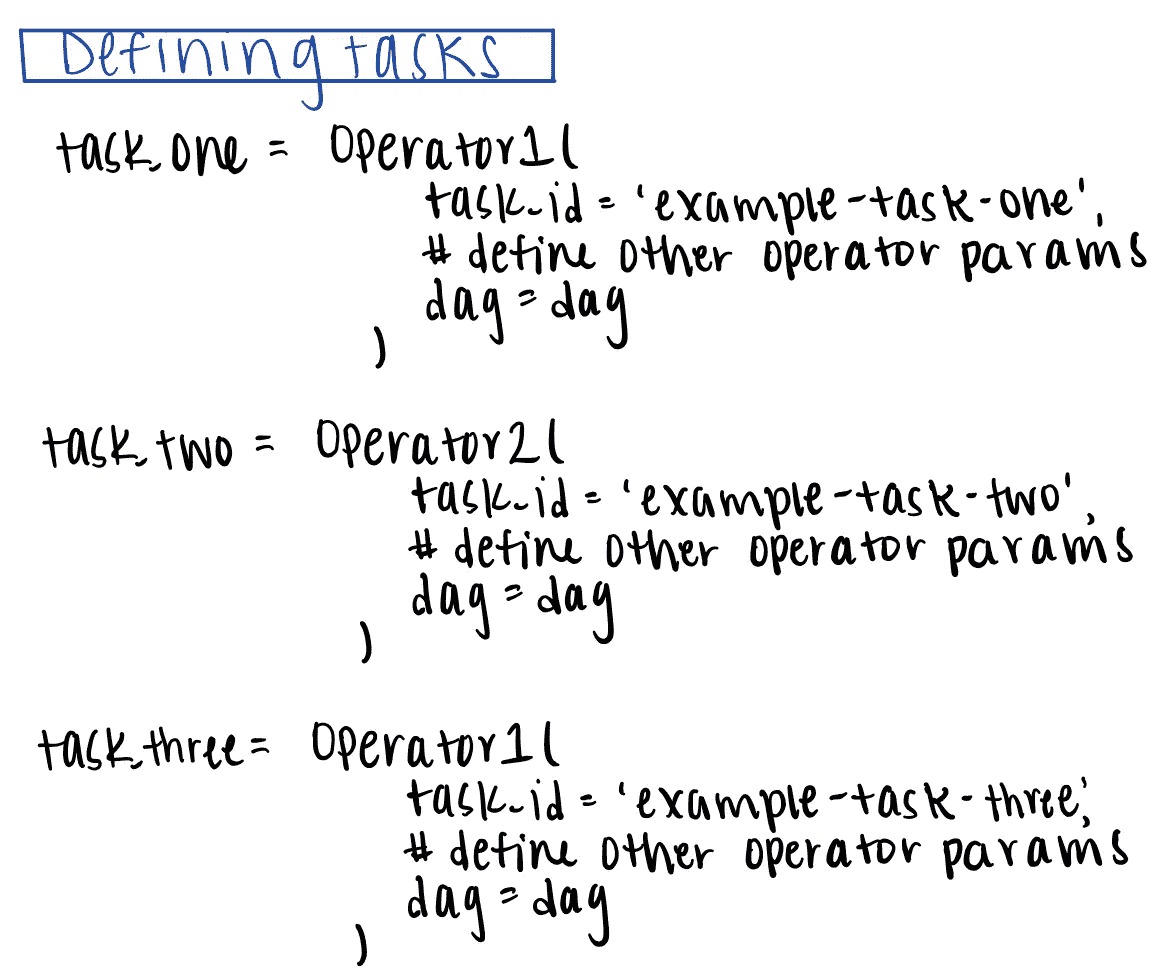 Defining tasks
task_one = Operator1(
task_id = 'example-task-one',
# define other operator params
dag = dag
)
task_two = Operator2(
task_id = 'example-task-two',
# define other operator params
dag = dag
)
task_three = Operator1(
task_id = 'example-task-three',
# define other operator params
dag = dag
)